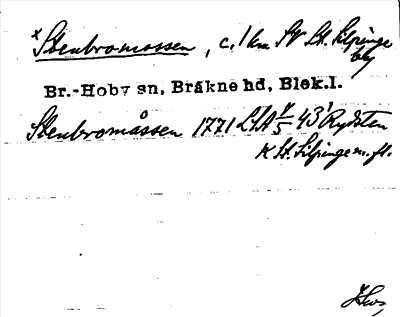 x Stenbromossen, c. 1 km SV St. Silpinge
by
Br.-Hoby sn, Bräkne hd, Blek.l.
Stenbromåssen 1771 LSA 43¹ Rydsten
K St. Silpinge m. fl.